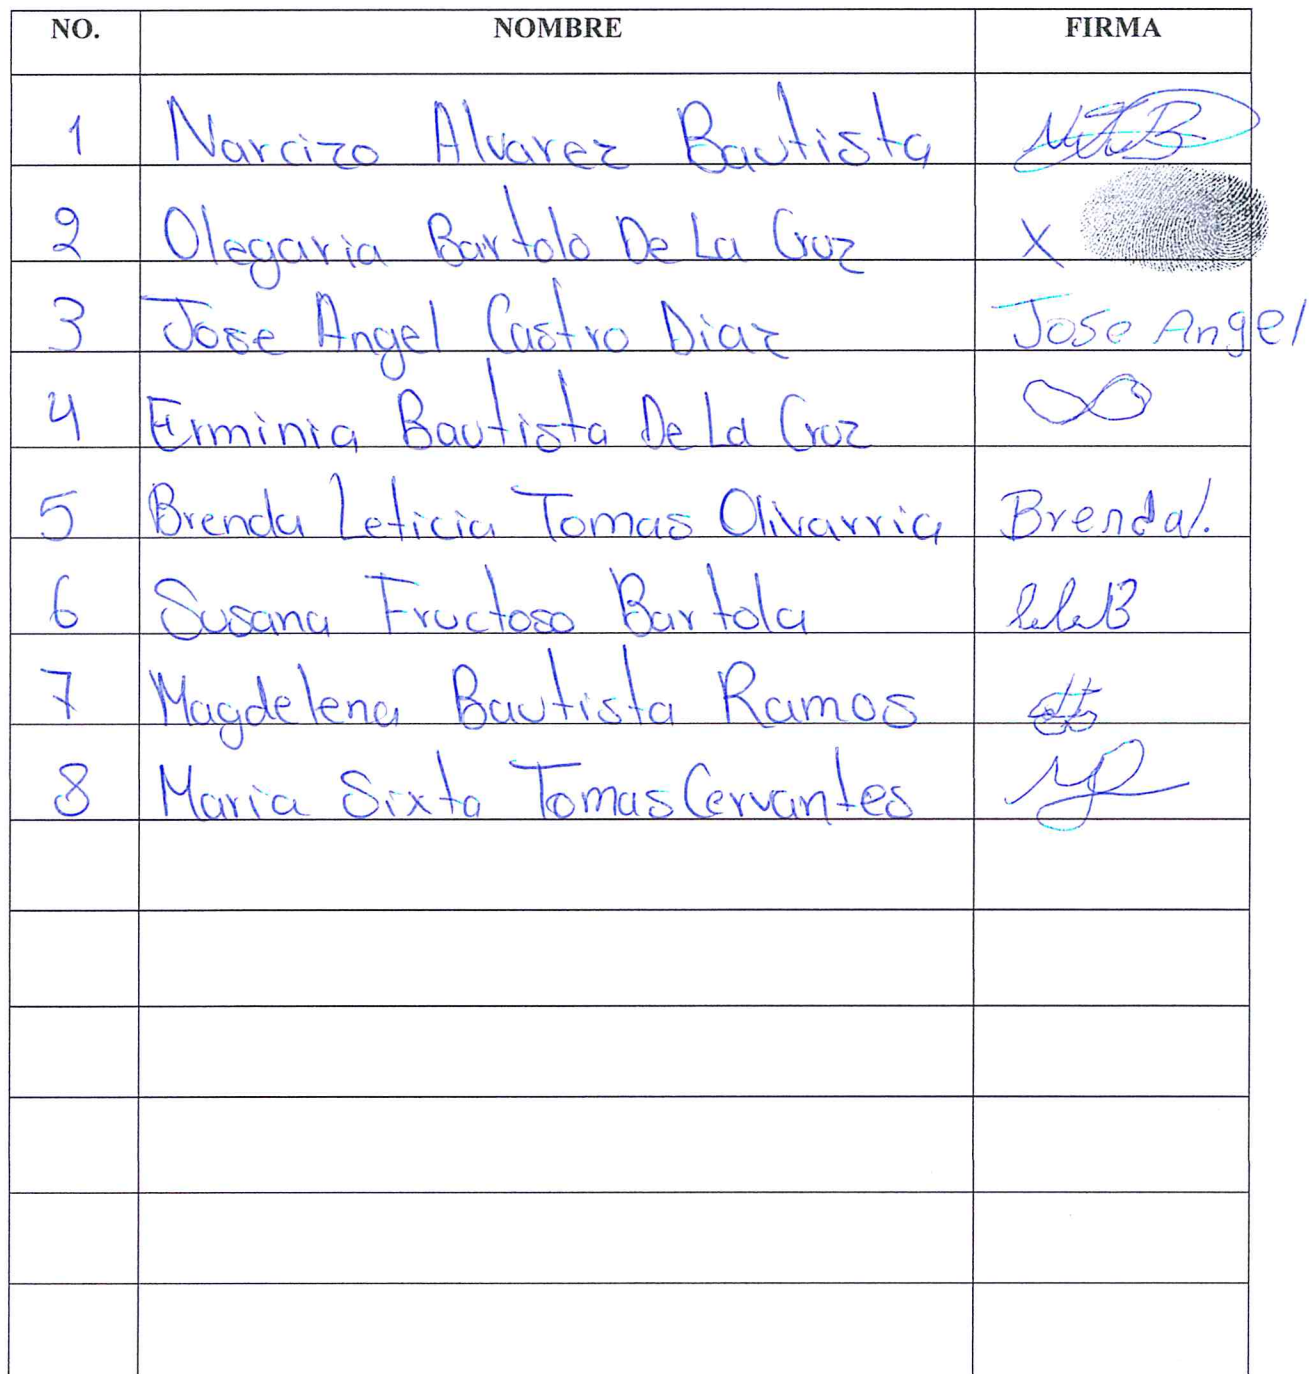 NO. NOMBRE FIRMA
1 Narcizo Alvarez Bautista NAB
2 Olegaria Bartolo De La Cruz X
3 Jose Angel Castro Diaz Jose Angel
4 Erminia Bautista De La Cruz
5 Brenda Leticia Tomas Olivarria Brenda l.
6 Susana Fructoso Bartola
7 Magdelena Bautista Ramos
8 Maria Sixta Tomas Cervantes